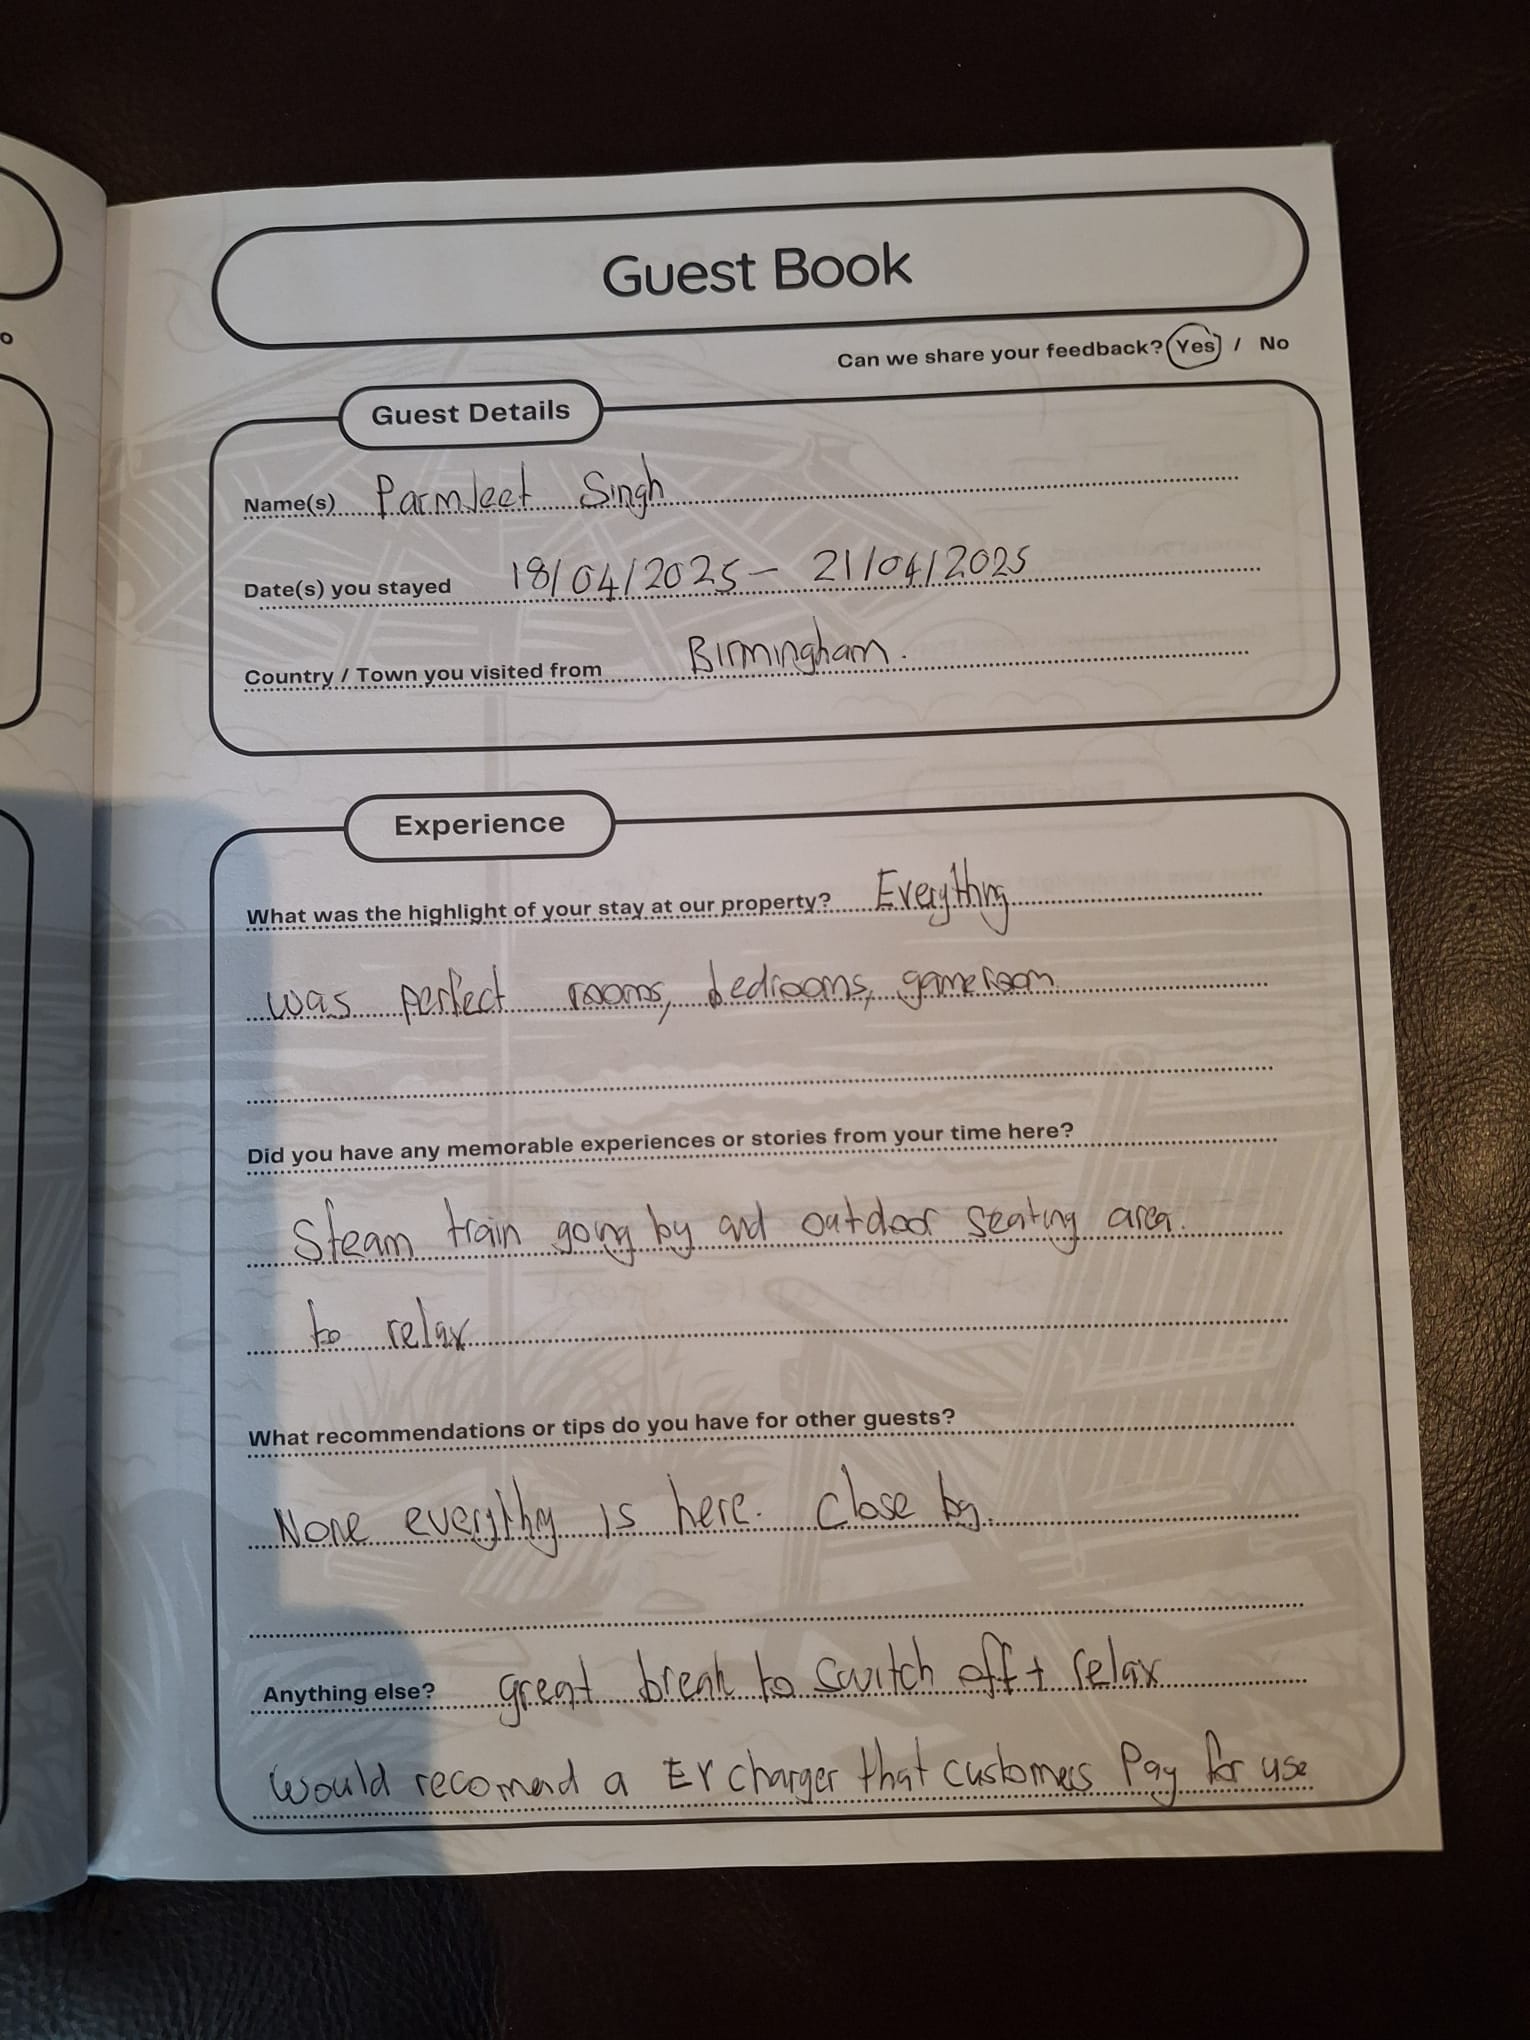 Guest Book
Can we share your feedback? Yes / No
o
Guest Details
Name(s) Parmjeet Singh
Date(s) you stayed 18/04/2025 - 21/04/2025
Country / Town you visited from Birmingham.
Experience
What was the highlight of your stay at our property? Everything
was perfect rooms, bedrooms, gameroom
Did you have any memorable experiences or stories from your time here?
Steam train going by and outdoor seating area.
to relax
What recommendations or tips do you have for other guests?
None everything is here. Close by.
Anything else? great break to switch off + relax
Would recomend a EV charger that customers Pay for use